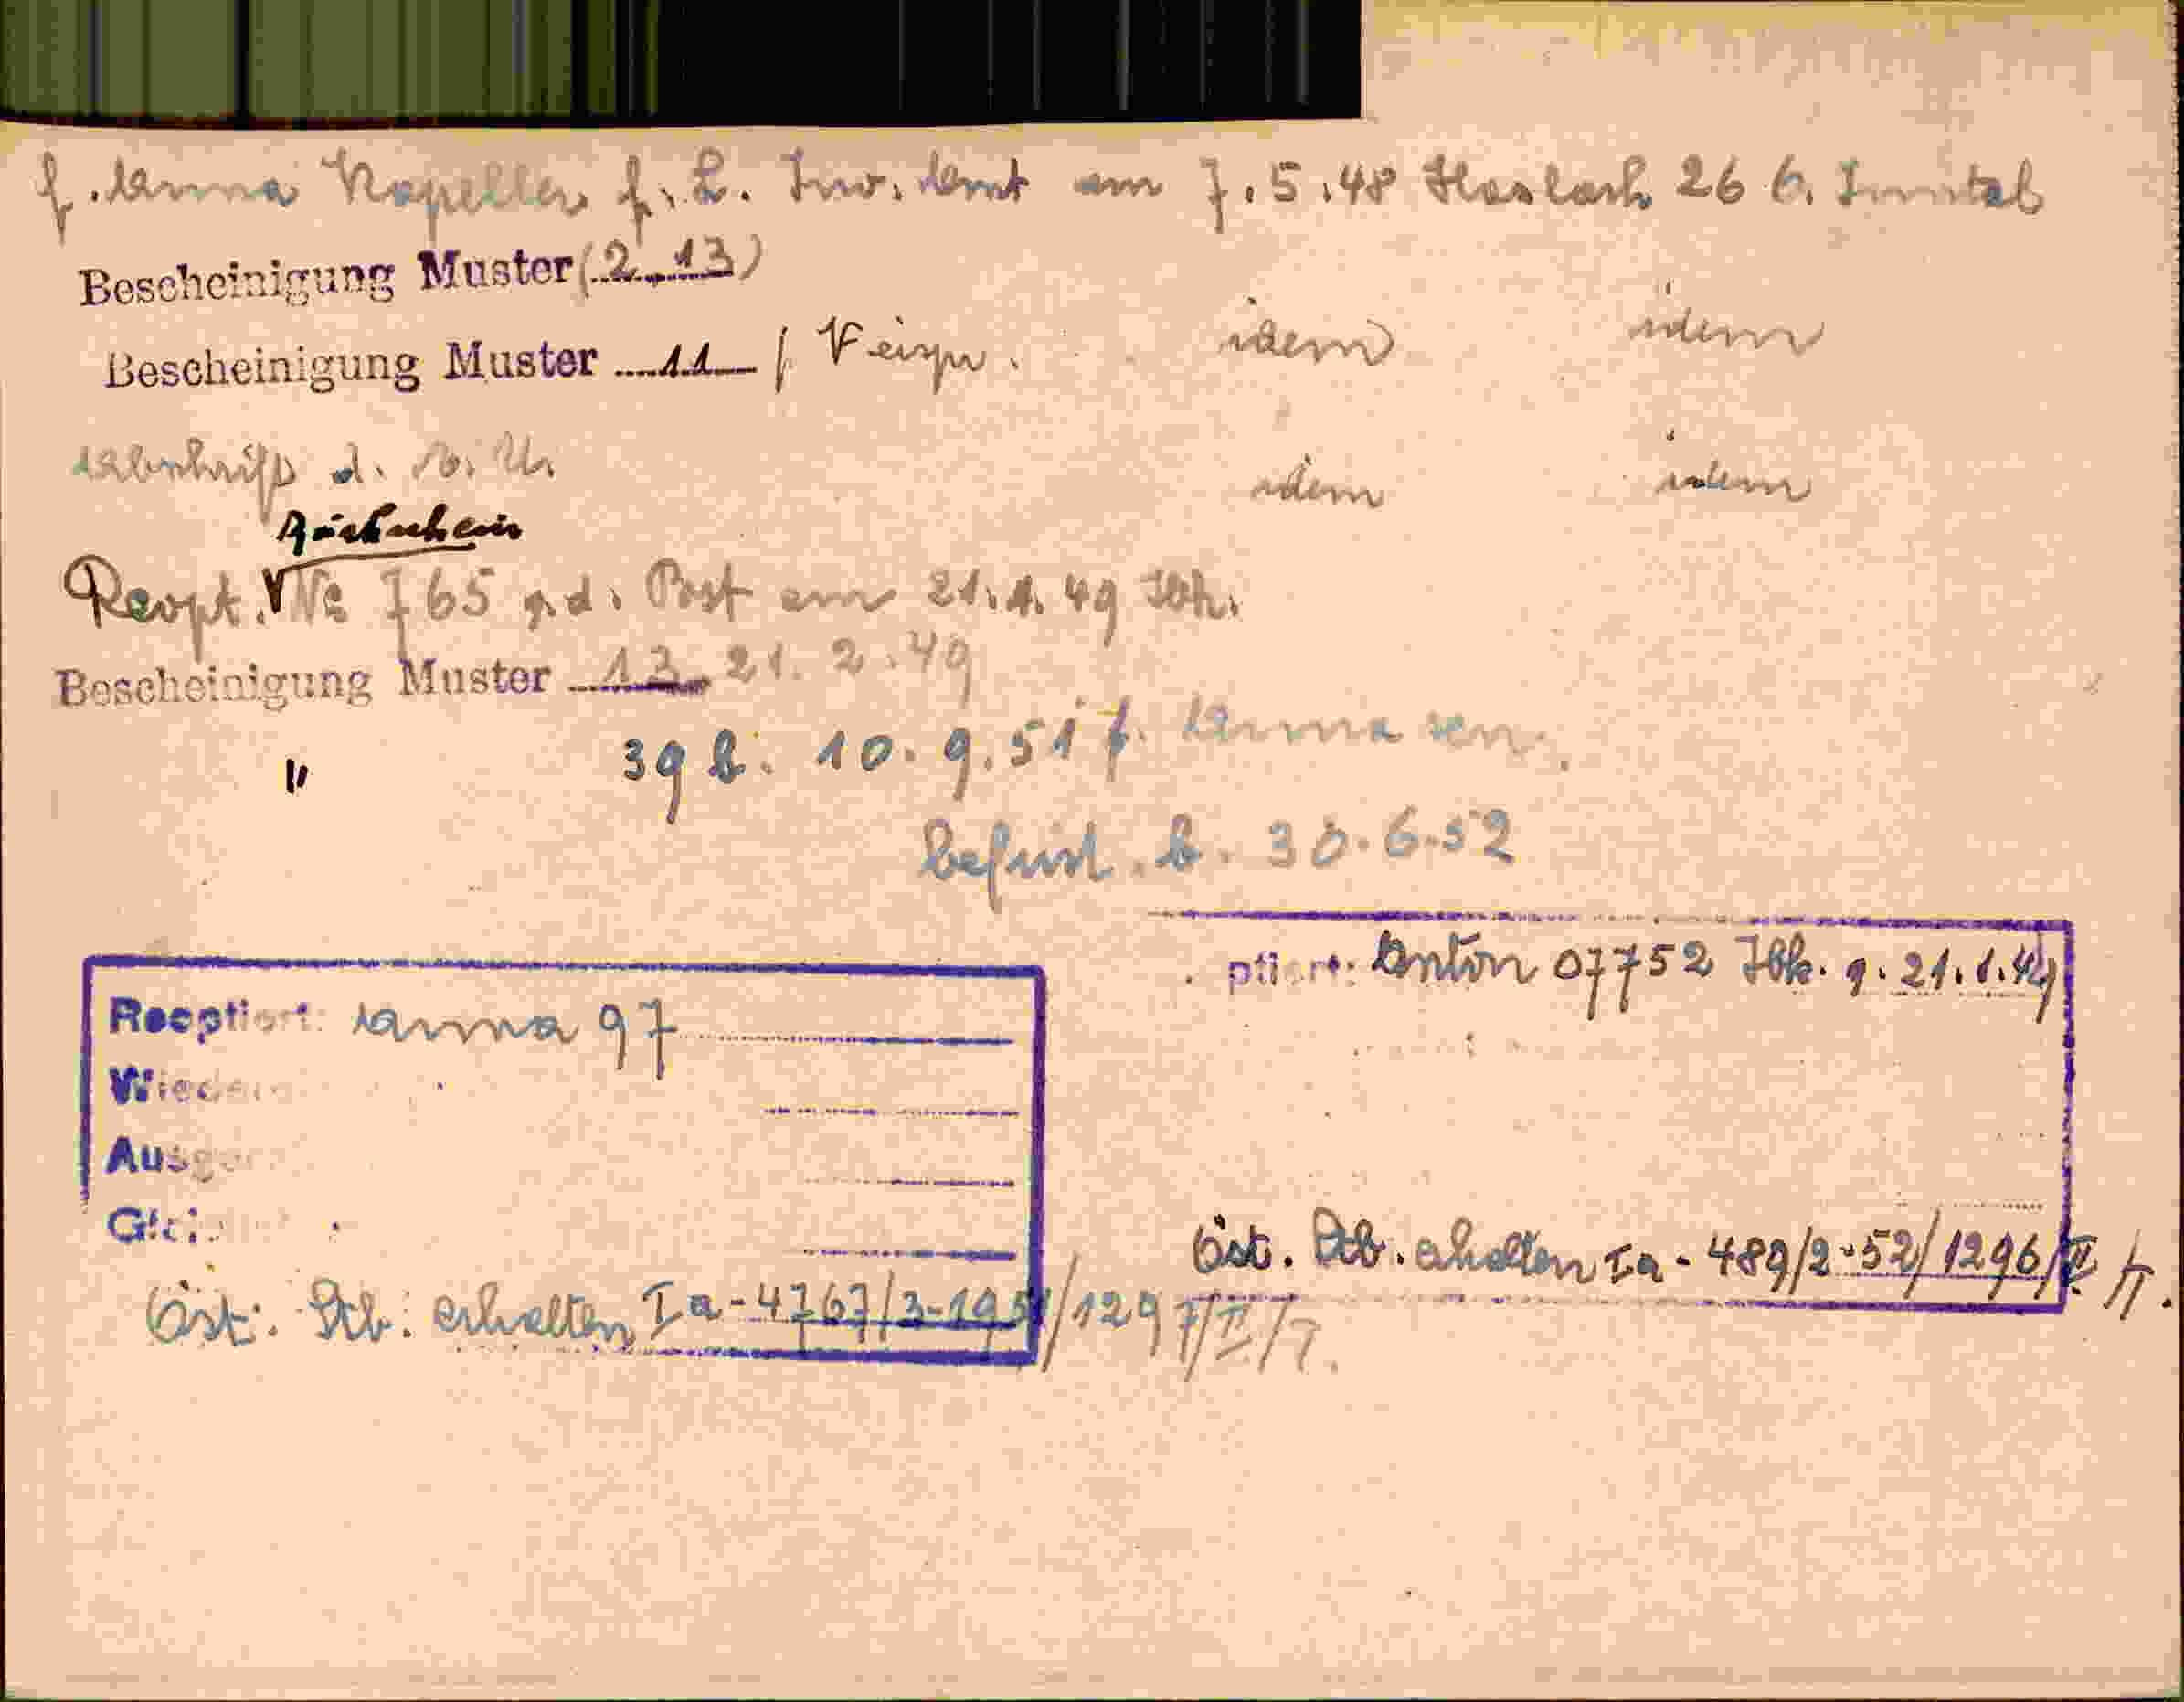 f. Anna Kapeller f. L. Inv. Amt am 7.5.48 Haslach 26 b. Inntal
Bescheinigung Muster (2 13)
Bescheinigung Muster 11 idem idem
Abschrift d. idem idem
Rückschein
Reopt. № 765 p.d. Post am 21.1.49 Ibk.
Bescheinigung Muster 13 21.2.49
" 39 b. 10.9.51 f. Anna
befrist. b. 30.6.52
ptiert: Anton 07752 Ibk. g. 21.1.49
Reoptiert: Anna 97
Wieder
Ausge
Gle
Öst. Stb. erhalten Ia-489/2-52/1296/II
Öst. Stb. erhalten Ia-4767/3-1951/1297/II/7.